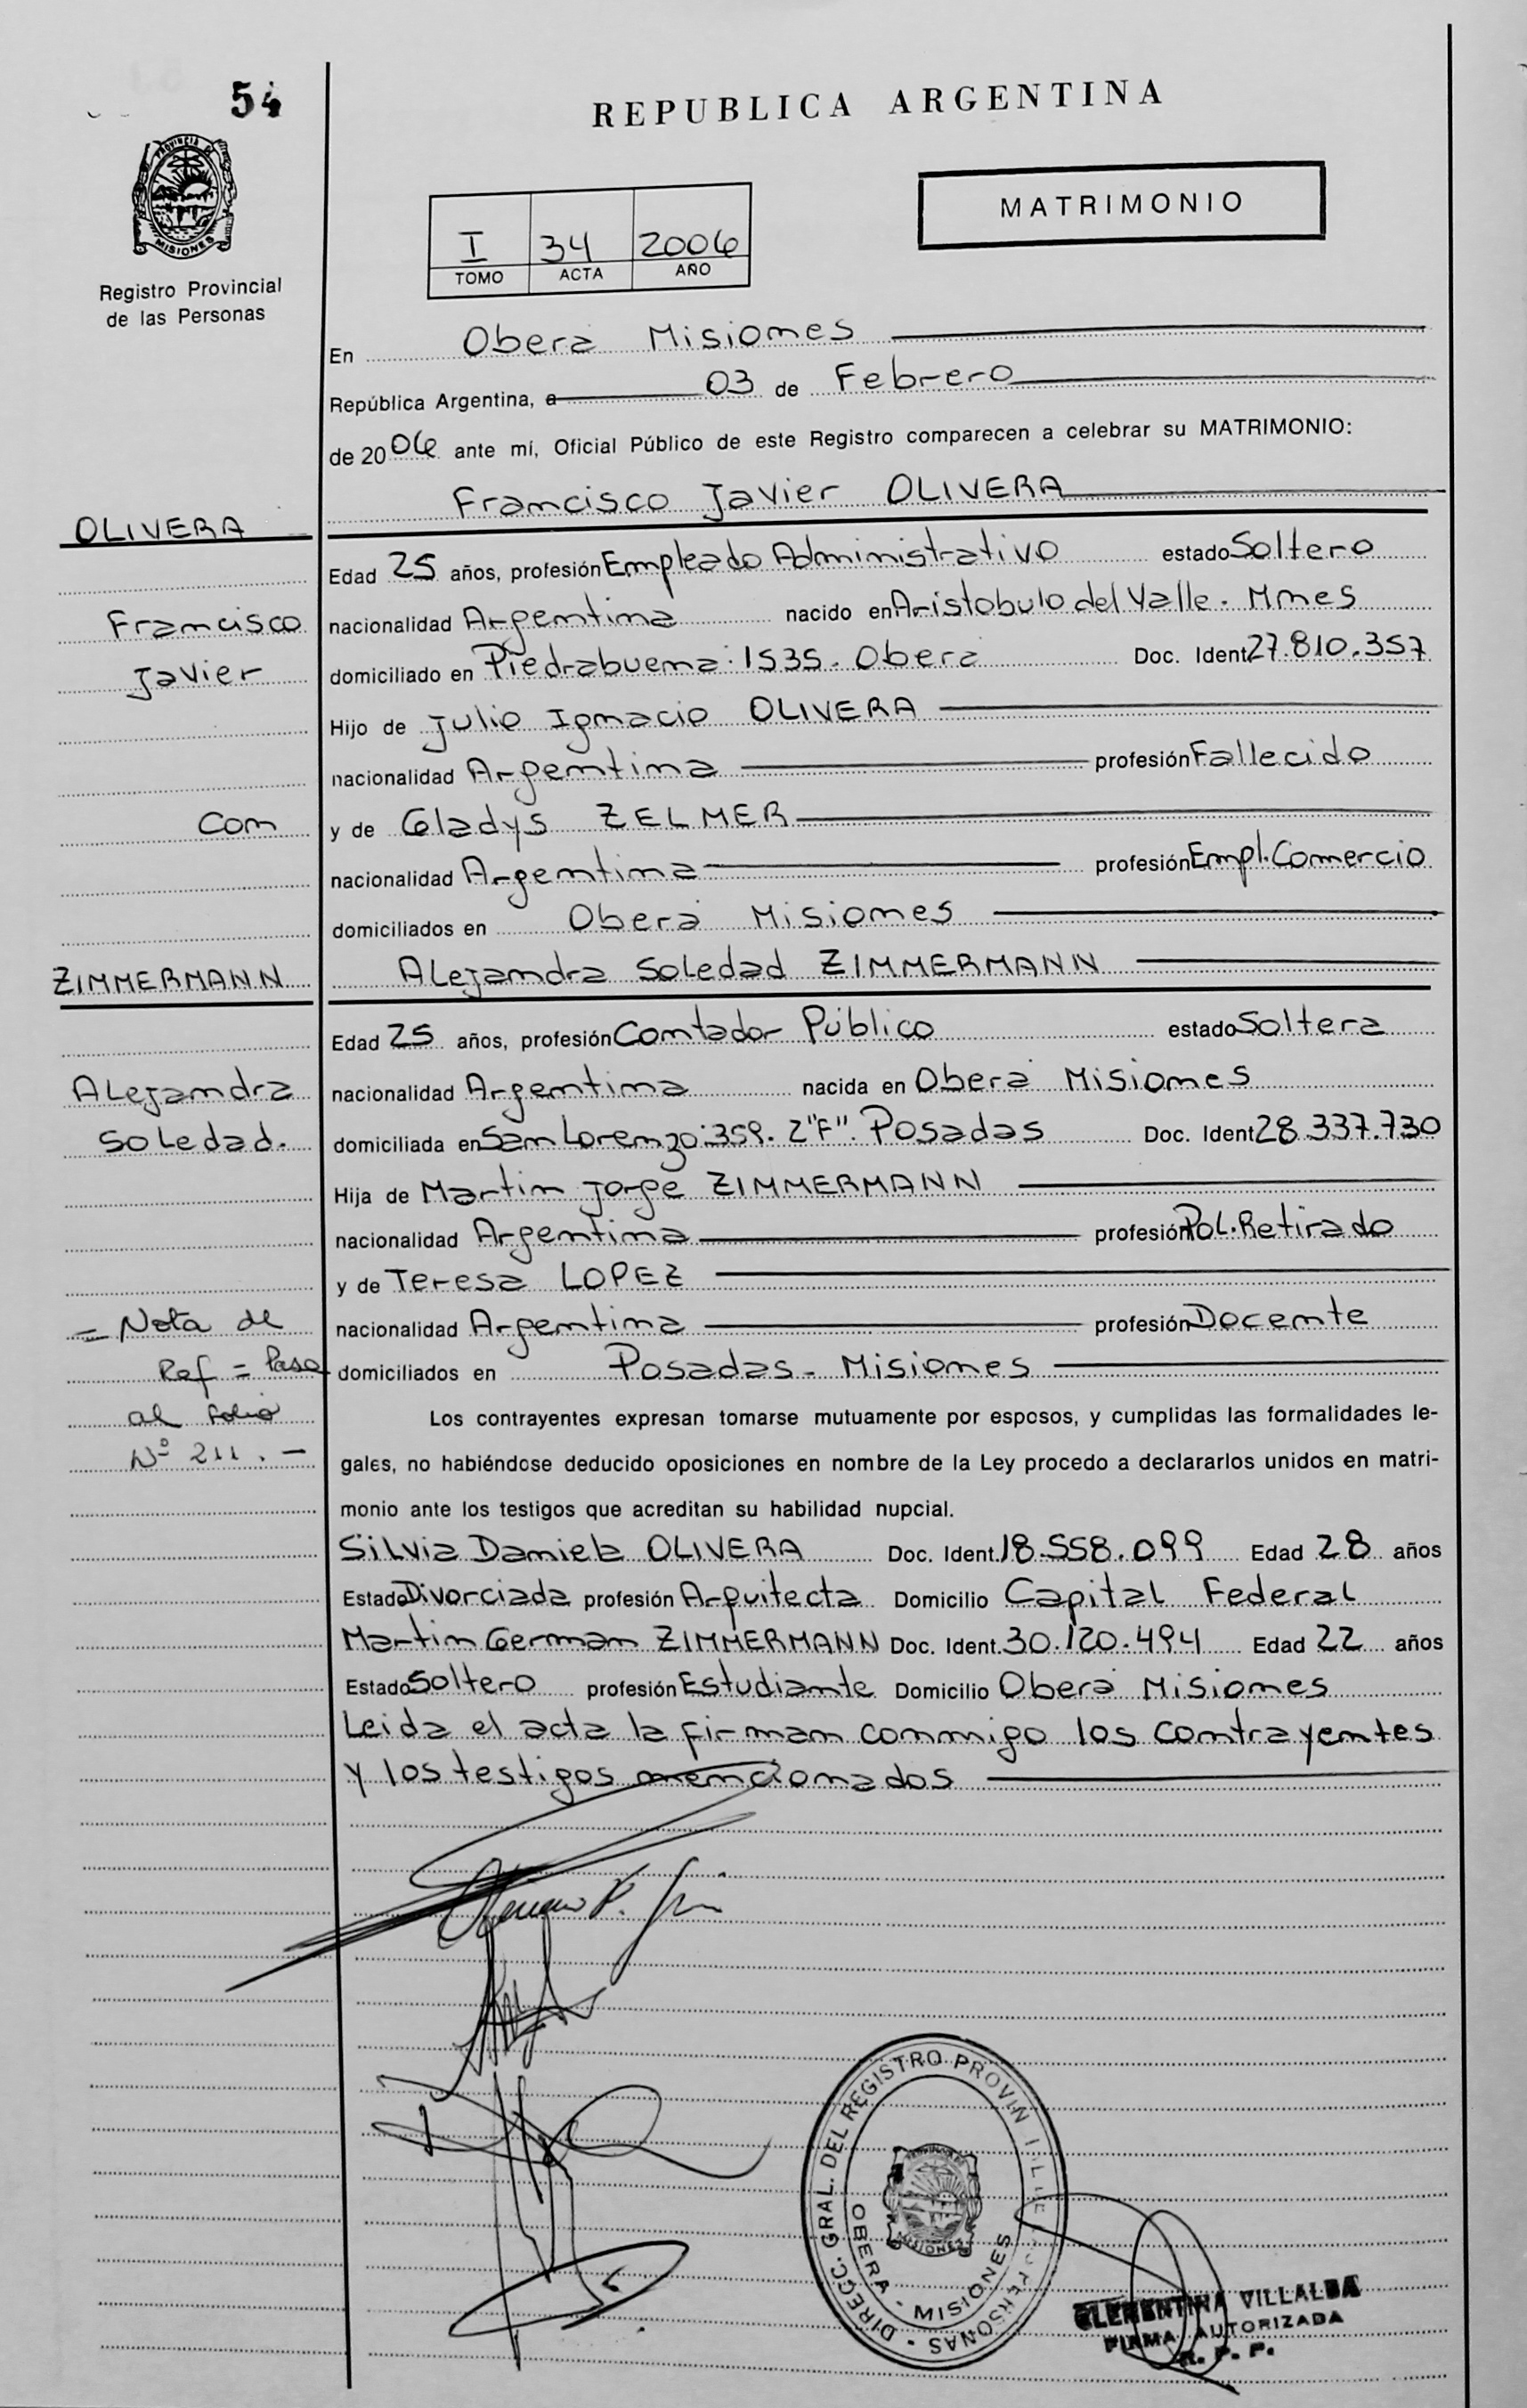 54
REPUBLICA ARGENTINA
PROVINCIA D
MISIONES
MATRIMONIO
I 34 2006
TOMO ACTA AÑO
Registro Provincial
de las Personas
En Obera Misiones
República Argentina, a 03 de Febrero
de 2006 ante mí, Oficial Público de este Registro comparecen a celebrar su MATRIMONIO:
Francisco Javier OLIVERA
OLIVERA
Edad 25 años, profesión Empleado Administrativo estado Soltero
Francisco
nacionalidad Argentina nacido en Aristobulo del Valle. Mnes
Javier
domiciliado en Piedrabuena: 1535. Obera Doc. Ident. 27.810.357
Hijo de Julio Ignacio OLIVERA
nacionalidad Argentina profesión Fallecido
Con
y de Gladys ZELMER
nacionalidad Argentina profesión Empl. Comercio
domiciliados en Obera Misiones
ZIMMERMANN
Alejandra Soledad ZIMMERMANN
Edad 25 años, profesión Contador Público estado Soltera
Alejandra
nacionalidad Argentina nacida en Obera Misiones
Soledad.
domiciliada en San Lorenzo: 359. 2"F". Posadas Doc. Ident. 28.337.730
Hija de Martin Jorge ZIMMERMANN
nacionalidad Argentina profesión Pol. Retirado
y de Teresa LOPEZ
= Nota de
nacionalidad Argentina profesión Docente
Ref = Pasa
domiciliados en Posadas - Misiones
al folio
Los contrayentes expresan tomarse mutuamente por esposos, y cumplidas las formalidades le-
Nº 211. -
gales, no habiéndose deducido oposiciones en nombre de la Ley procedo a declararlos unidos en matri-
monio ante los testigos que acreditan su habilidad nupcial.
Silvia Daniela OLIVERA Doc. Ident. 18.558.099 Edad 28 años
Estado Divorciada profesión Arquitecta Domicilio Capital Federal
Martin German ZIMMERMANN Doc. Ident. 30.120.494 Edad 22 años
Estado Soltero profesión Estudiante Domicilio Obera Misiones
Leida el acta la firman conmigo los contrayentes
y los testigos mencionados
DIRECC. GRAL. DEL REGISTRO PROVIN PERSONAS
OBERA - MISIONES
MISIONES
CLEMENTINA VILLALBA
FIRMA AUTORIZADA
R. P. P.